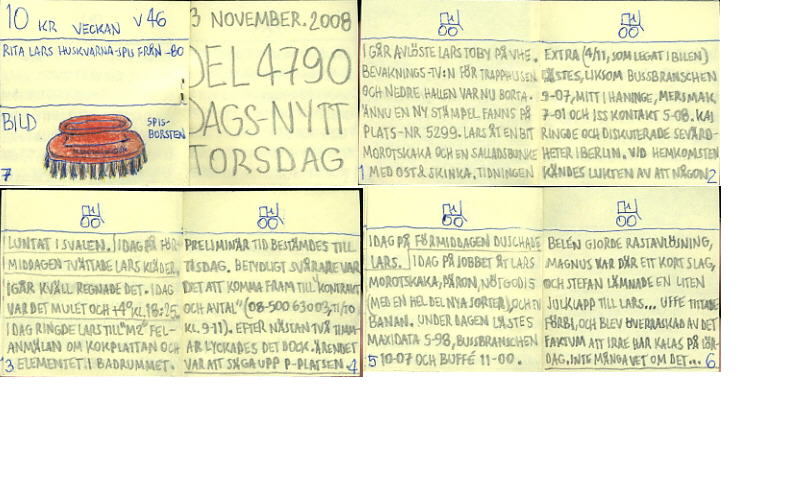 10 KR VECKAN V 46
RITA LARS HUSKVARNA-SPIS FRÅN -80
BILD
SPIS-
BORSTEN
7
3 NOVEMBER. 2008
DEL 4790
DAGS-NYTT
TORSDAG
I GÅR AVLÖSTE LARS TOBY PÅ VHE.
BEVAKNINGS-TV:N FÖR TRAPPHUSEN
OCH NEDRE HALLEN VAR NU BORTA.
ÄNNU EN NY STÄMPEL FANNS PÅ
PLATS-NR 5299. LARS ÅT EN BIT
MOROTSKAKA OCH EN SALLADSBUNKE
1 MED OST & SKINKA. TIDNINGEN
EXTRA (4/11, SOM LEGAT I BILEN)
LÄSTES, LIKSOM BUSSBRANSCHEN
9-07, MITT I HANINGE, MERSMAK
7-01 OCH ISS KONTAKT 5-08. KAI
RINGDE OCH DISKUTERADE SEVÄRD-
HETER I BERLIN. VID HEMKOMSTEN
KÄNDES LUKTEN AV ATT NÅGON 2
LUNTAT I SVALEN. IDAG PÅ FÖR-
MIDDAGEN TVÄTTADE LARS KLÄDER.
IGÅR KVÄLL REGNADE DET. IDAG
VAR DET MULET OCH +4° KL. 18:25.
IDAG RINGDE LARS TILL "M2" FEL-
ANMÄLAN OM KOKPLATTAN OCH
3 ELEMENTET I BADRUMMET.
PRELIMINÄR TID BESTÄMDES TILL
TISDAG. BETYDLIGT SVÅRARE VAR
DET ATT KOMMA FRAM TILL "KONTRAKT
OCH AVTAL" (08-500 630 03, TI/TO
KL. 9-11). EFTER NÄSTAN TVÅ TIMM-
AR LYCKADES DET DOCK. ÄRENDET
VAR ATT SÄGA UPP P-PLATSEN. 4
IDAG PÅ FÖRMIDDAGEN DUSCHADE
LARS. IDAG PÅ JOBBET ÅT LARS
MOROTSKAKA, PÄRON, NÖTGODIS
(MED EN HEL DEL NYA SORTER), OCH EN
BANAN. UNDER DAGEN LÄSTES
MAXIDATA 5-98, BUSSBRANSCHEN
5 10-07 OCH BUFFÉ 11-00.
BELÉN GJORDE RASTAVLÖSNING,
MAGNUS VAR DÄR ETT KORT SLAG,
OCH STEFAN LÄMNADE EN LITEN
JULKLAPP TILL LARS... UFFE TITTADE
FÖRBI, OCH BLEV ÖVERRASKAD AV DET
FAKTUM ATT IRRE HAR KALAS PÅ LÖR-
DAG. INTE MÅNGA VET OM DET... 6